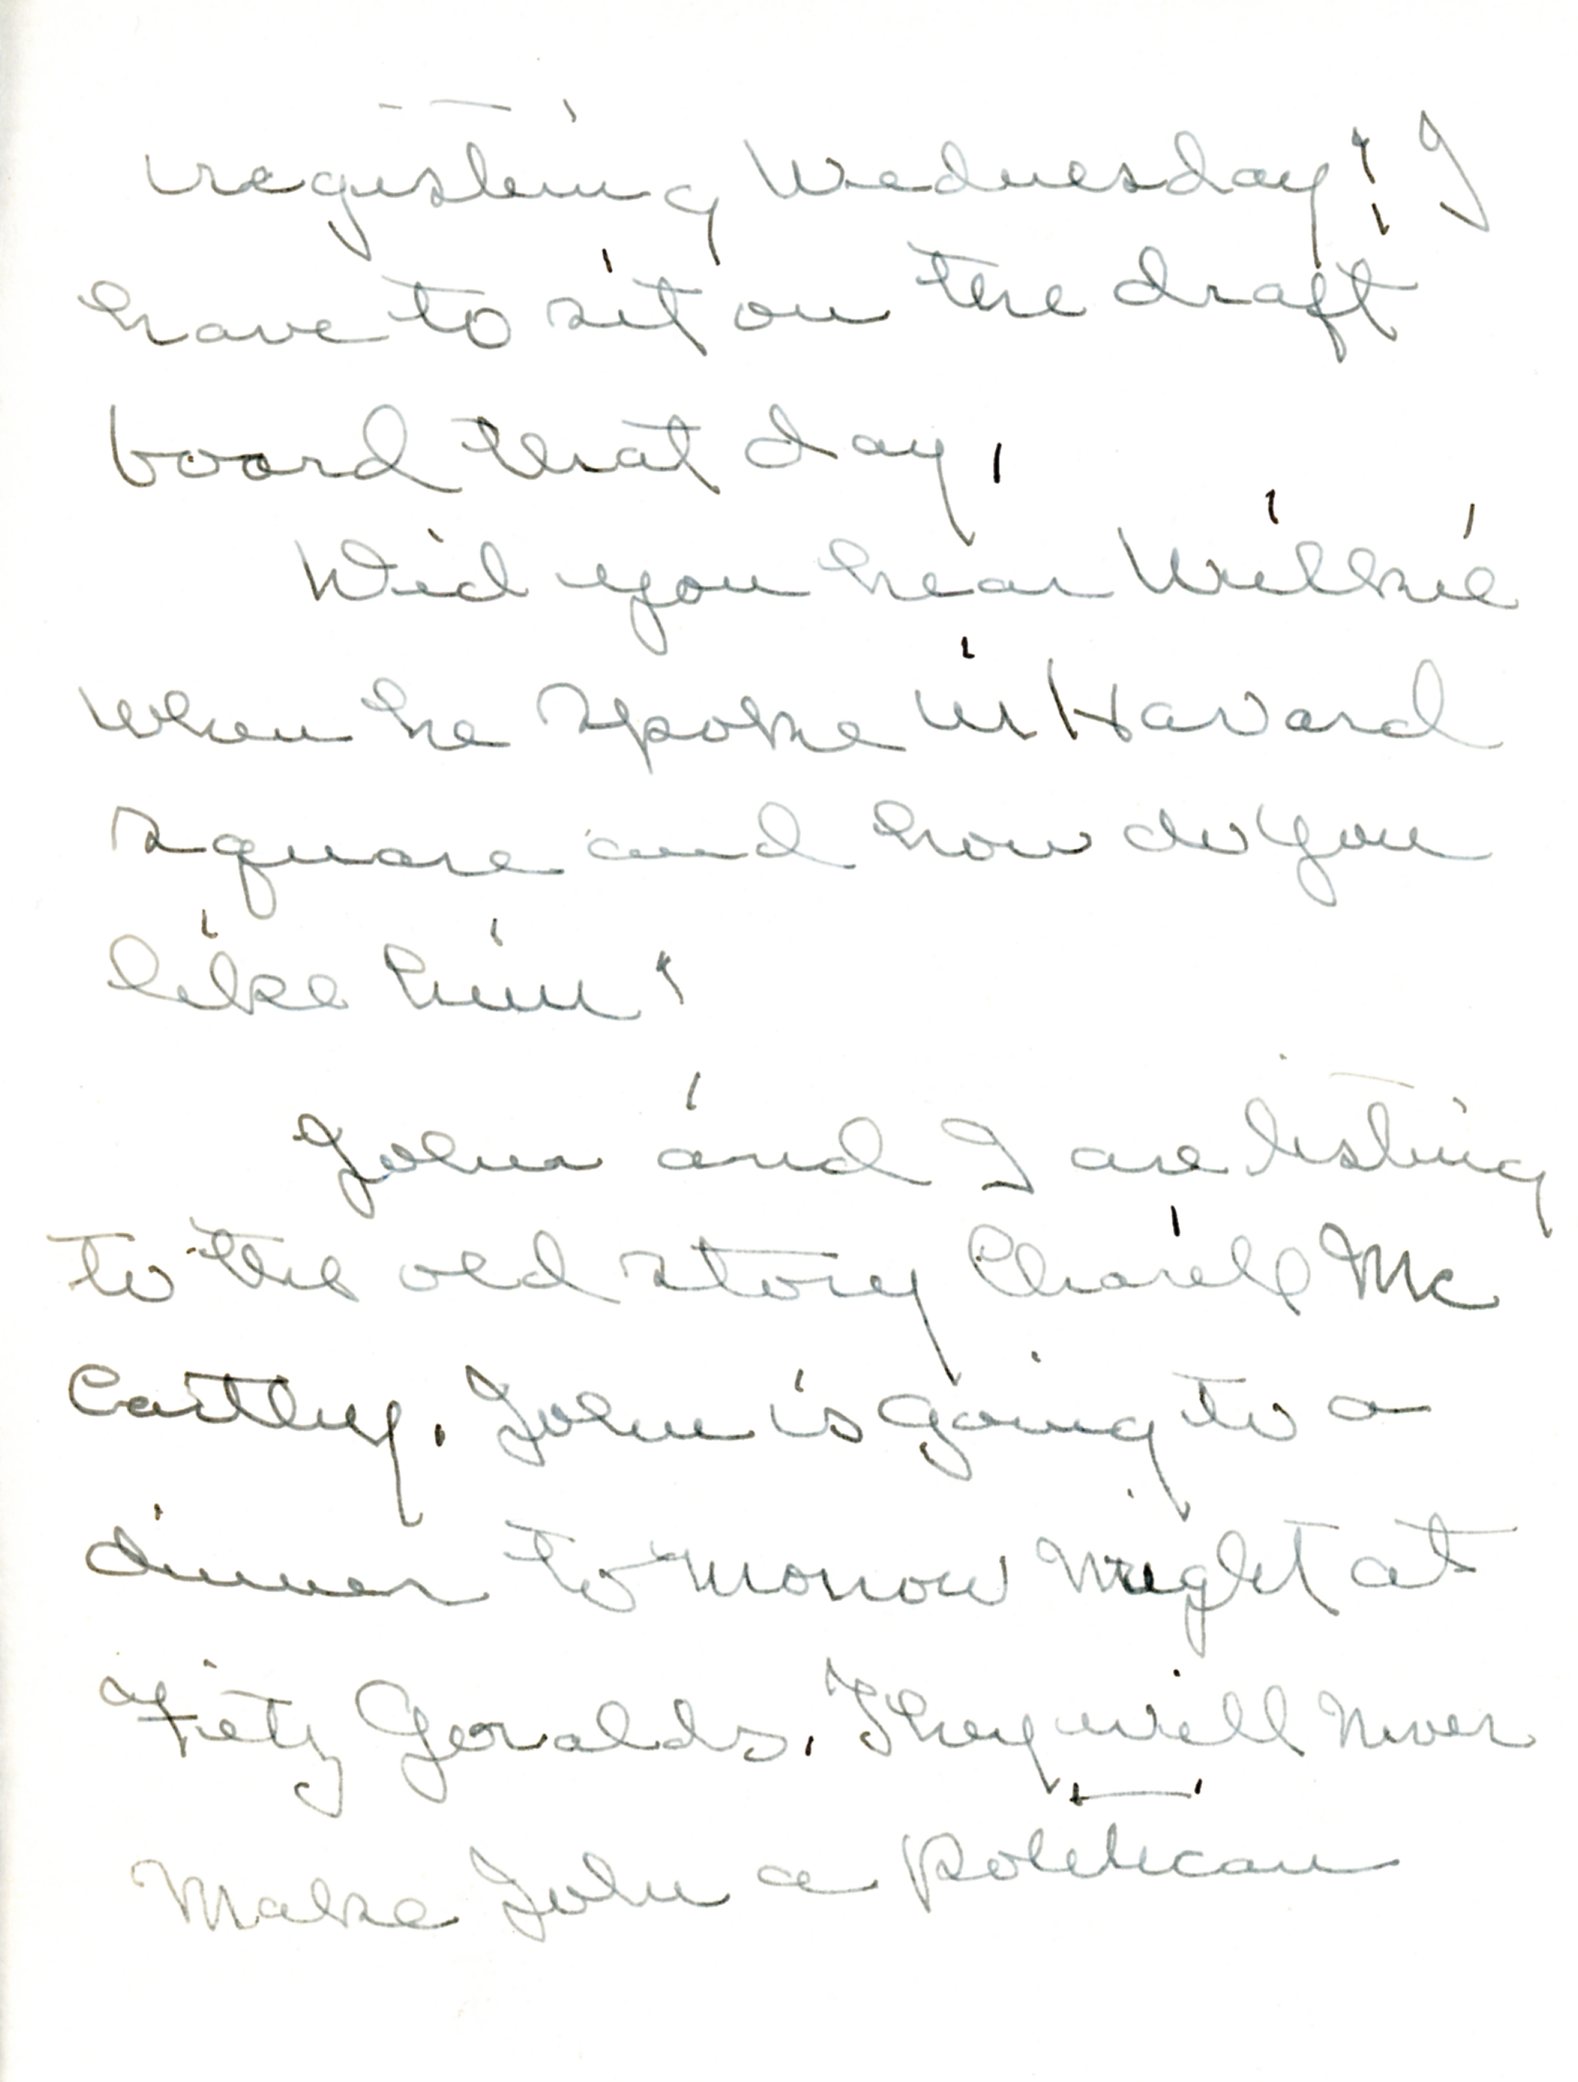 registering Wednesday? I
have to sit on the draft
board that day.
Did you hear Willkie
when he spoke in Havard
square and how do you
like him?
John and I are listing
to the old story Charlie Mc
Carthy. John is going to a
dinner tomorrow night at
Fitz Geralds. They will never
make John a politican